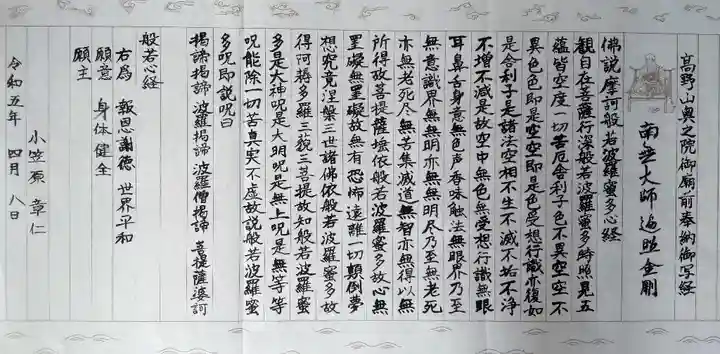 高野山奥之院御廟前奉納御写経
南無大師遍照金剛
佛説摩訶般若波羅蜜多心経
観自在菩薩行深般若波羅蜜多時照見五
蘊皆空度一切苦厄舎利子色不異空空不
異色色即是空空即是色受想行識亦復如
是舎利子是諸法空相不生不滅不垢不浄
不増不減是故空中無色無受想行識無眼
耳鼻舌身意無色声香味触法無眼界乃至
無意識界無無明亦無無明尽乃至無老死
亦無老死尽無苦集滅道無智亦無得以無
所得故菩提薩埵依般若波羅蜜多故心無
罣礙無罣礙故無有恐怖遠離一切顛倒夢
想究竟涅槃三世諸佛依般若波羅蜜多故
得阿耨多羅三藐三菩提故知般若波羅蜜
多是大神呪是大明呪是無上呪是無等等
呪能除一切苦真実不虚故説般若波羅蜜
多呪即説呪曰
掲諦掲諦 波羅掲諦 波羅僧掲諦 菩提薩婆訶
般若心経
右為 報恩謝徳 世界平和
願意 身体健全
願主
小笠原 章仁
令和五年 四月 八日